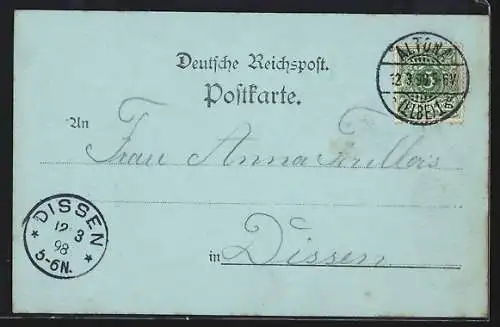 Deutsche Reichspost.
Postkarte.
ALTONA
12.3.98.5-6V.
(ELBE) 1.
An
Frau Anna
in Dissen
DISSEN
12 3
98
5-6N.